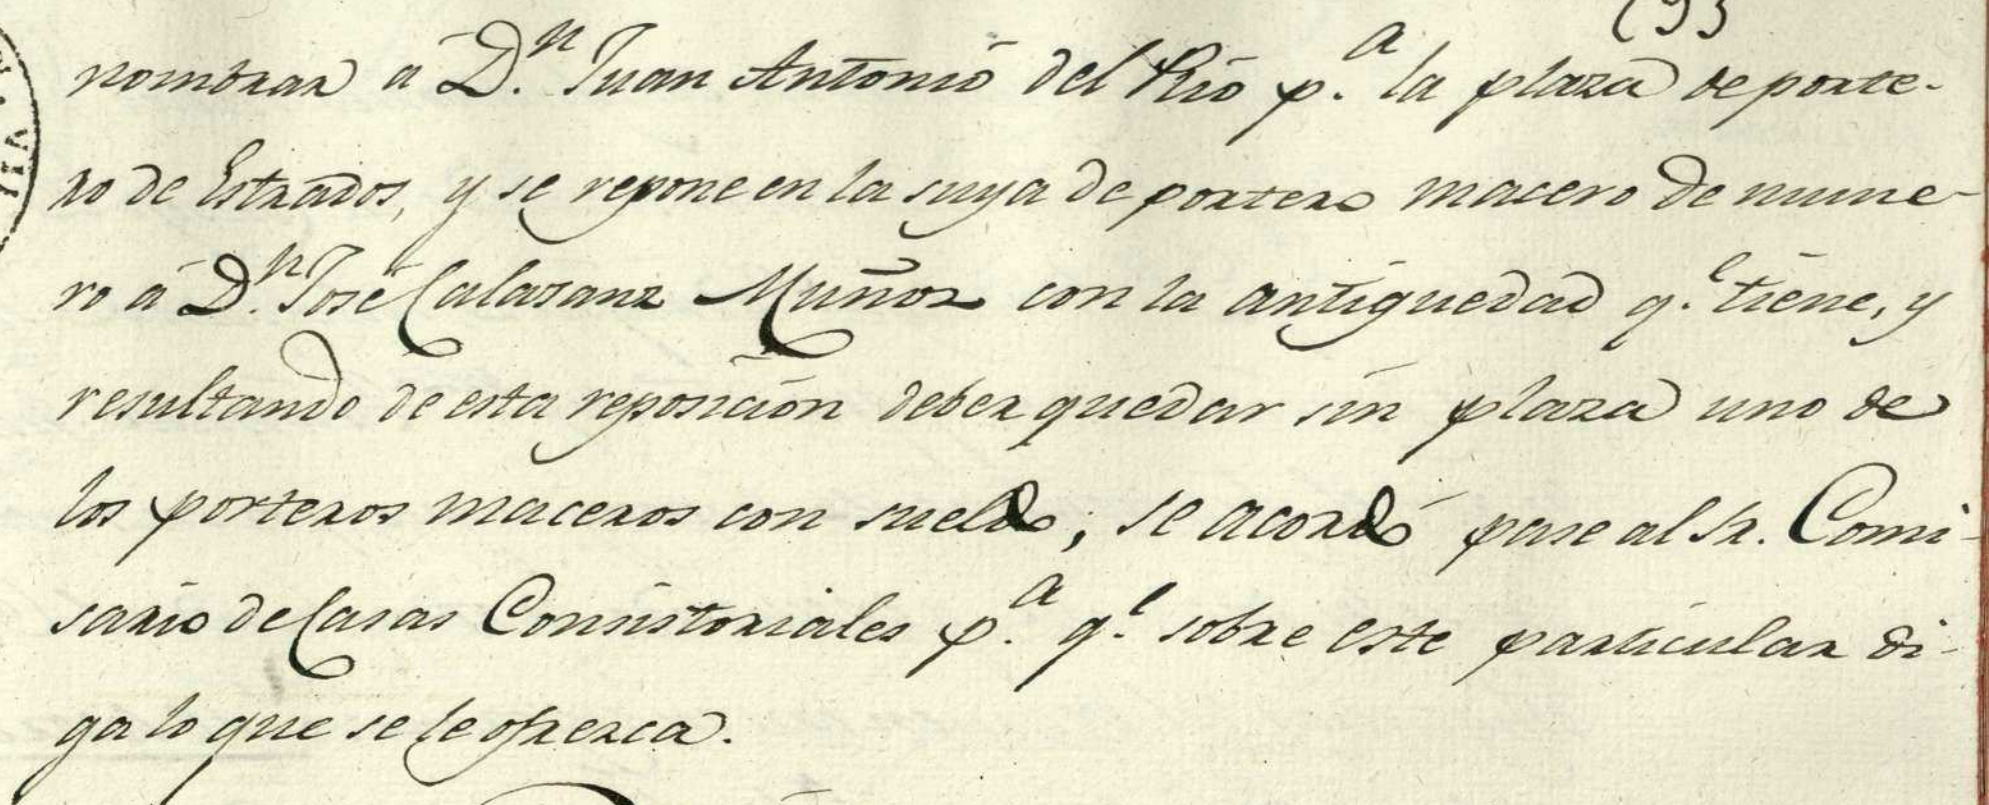 193
nombrar á D.n Juan Antonio del Rio p.a la plaza de porte-
ro de Estrados, y se repone en la suya de portero macero de nume-
ro á D.n José Calasanz Muñoz con la antiguedad q.e tiene, y
resultando de esta reposicion deber quedar sin plaza uno de
los porteros maceros con sueldo; se acordó pase al Sr. Comi-
sario de Casas Consistoriales p.a q.e sobre este particular di-
ga lo que se le ofrezca.